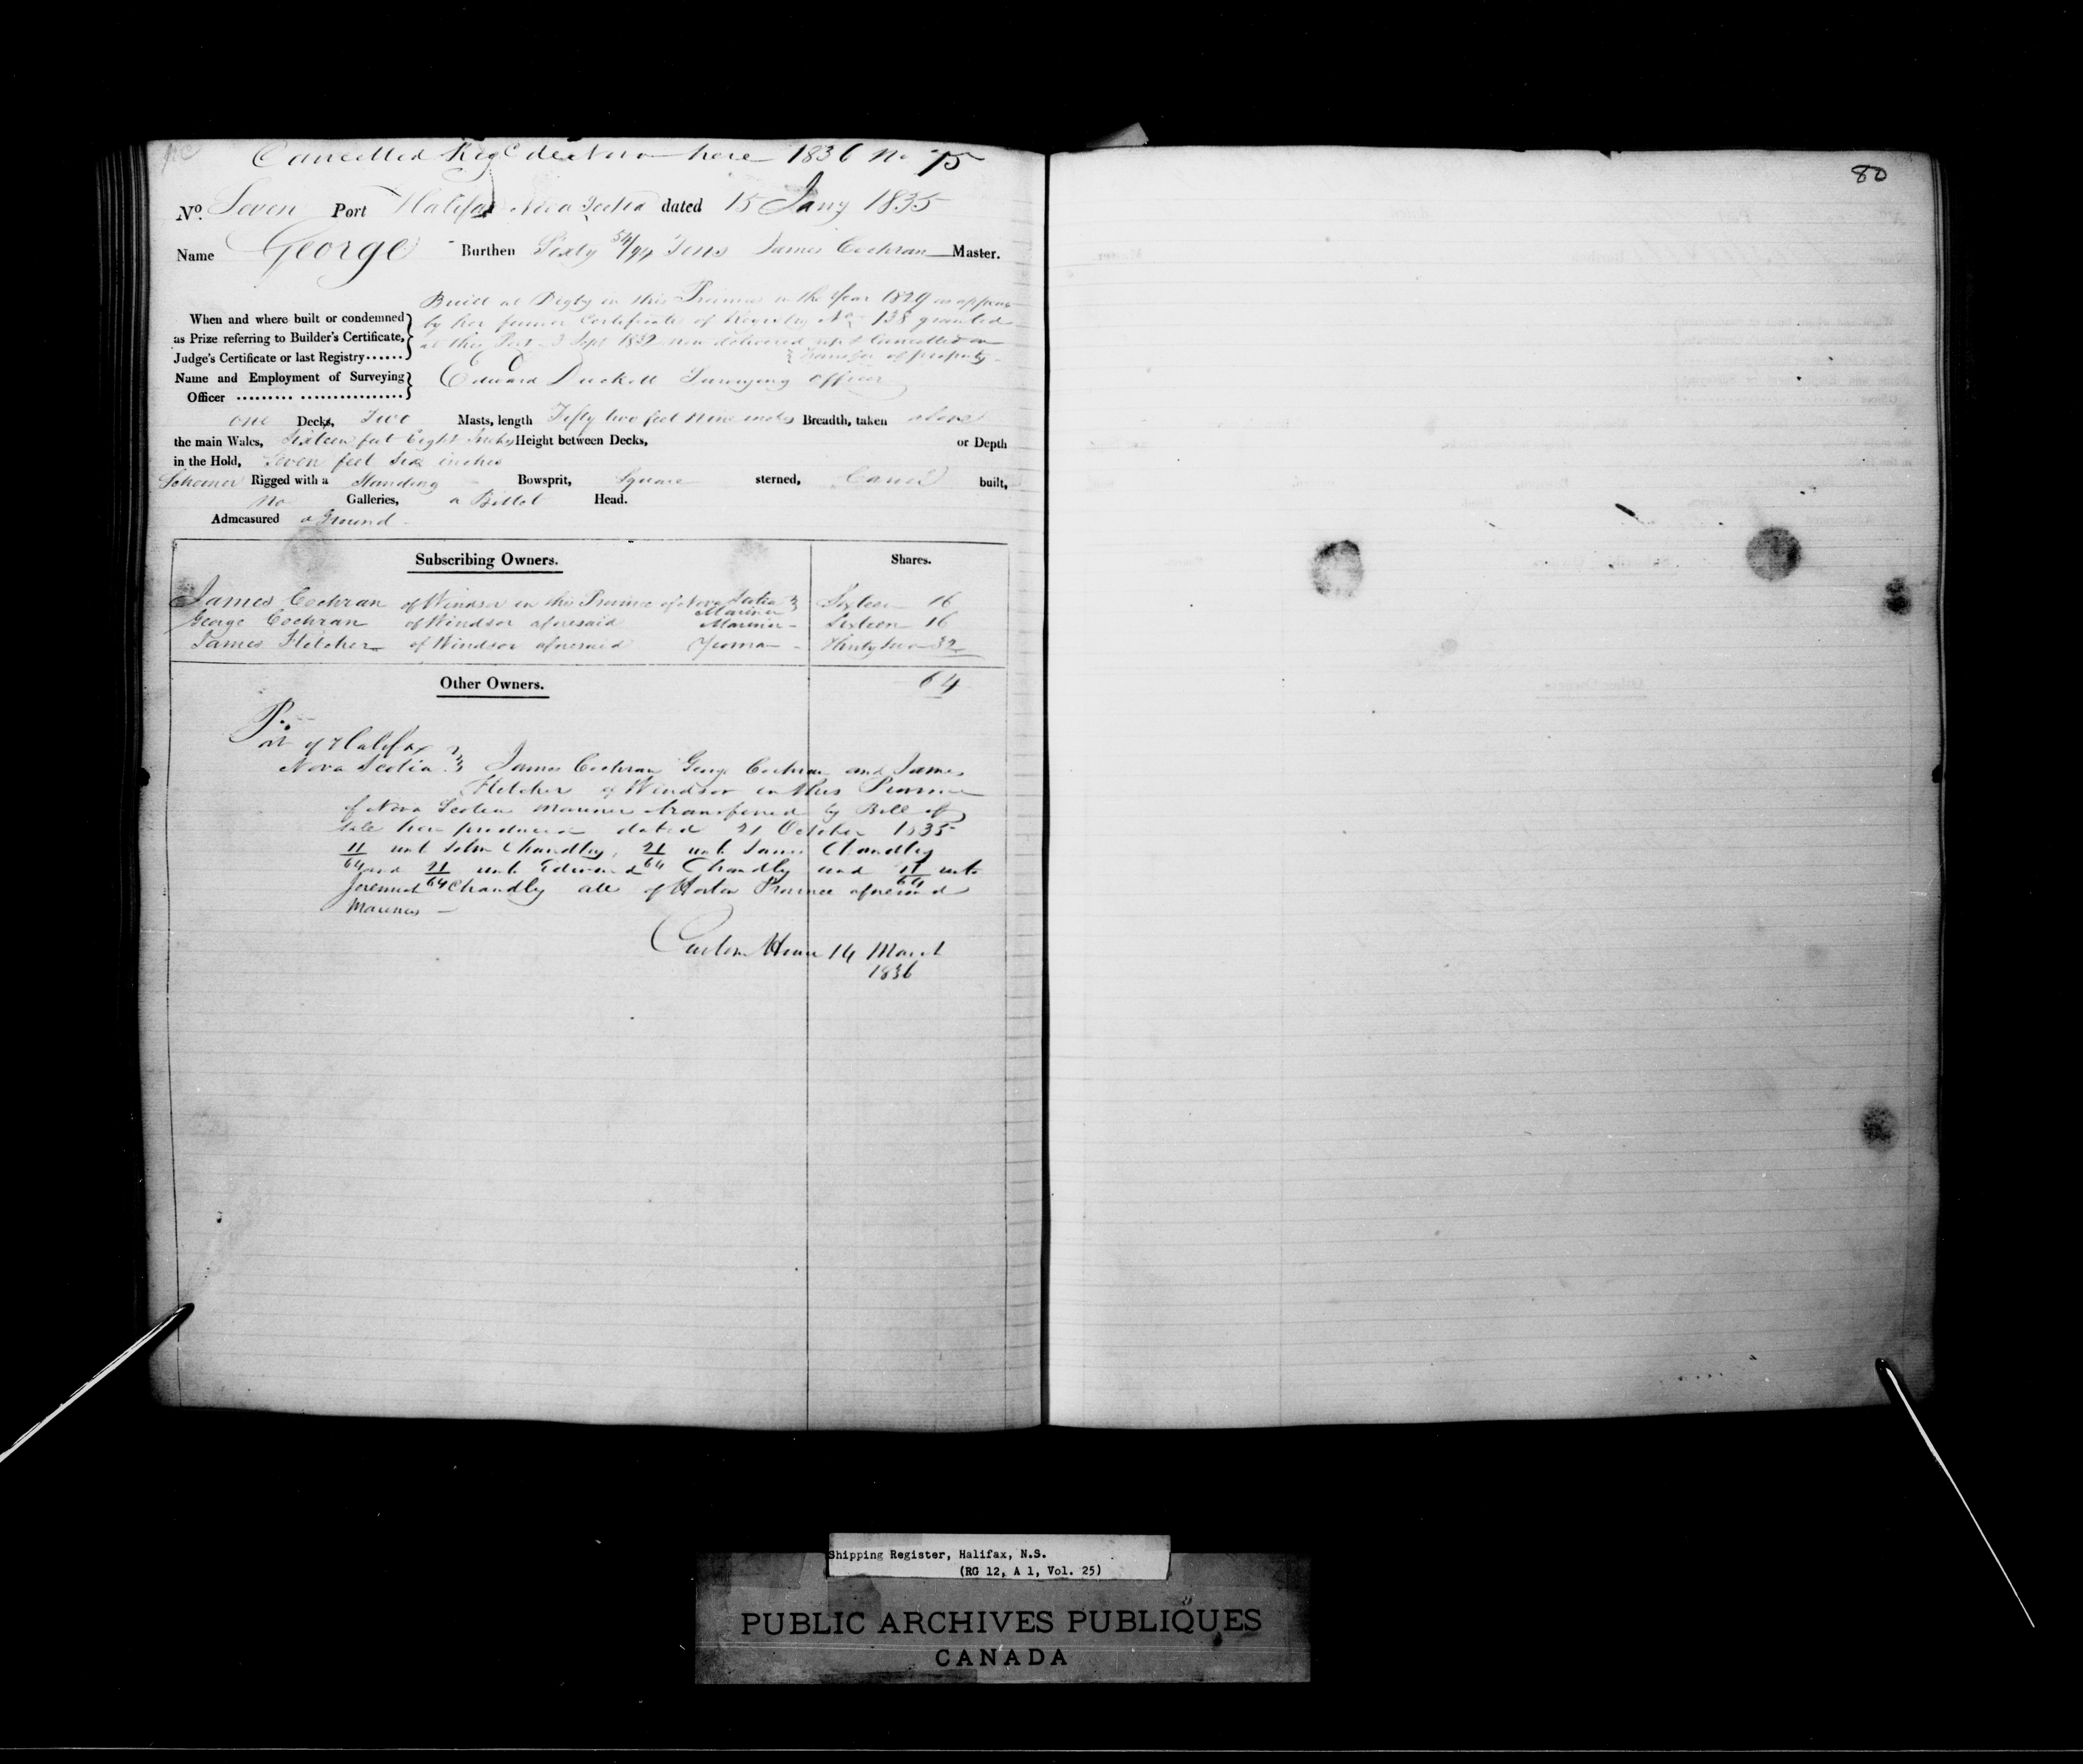 Cancelled Reg de Novo here 1836 No 75
80
No. Seven Port Halifax Nova Scotia dated 15 Jany 1835
Name George Burthen Sixty 54/94 Tons James Cochran Master.
Built at Digby in this Province in the Year 1829 as appears
When and where built or condemned
by her former Certificate of Registry No 138 granted
as Prize referring to Builder's Certificate,
at this Port 3 Sept 1832 now delivered up & Cancelled on
Judge's Certificate or last Registry......
Transfer of property
Name and Employment of Surveying
Edward Duckett Surveying Officer
Officer ......... ................
one Decks, Two Masts, length Fifty two feet nine inches Breadth, taken above
the main Wales, Sixteen feet Eight Inches Height between Decks, or Depth
in the Hold, Seven feet six inches
Schooner Rigged with a Standing Bowsprit, Square sterned, Carvel built,
No Galleries, a Billet Head.
Admeasured a Ground
Subscribing Owners. Shares.
James Cochran of Windsor in the Province of Nova Scotia Mariner Sixteen 16
George Cochran of Windsor aforesaid Mariner Sixteen 16
James Fletcher of Windsor aforesaid Yeoman Thirty two 32
Other Owners. 64
Port of Halifax
Nova Scotia James Cochran George Cochran and James
Fletcher of Windsor in this Province
of Nova Scotia Mariners transferred by Bill of
Sale here produced dated 21 October 1835
11/64 unto John Chandley, 21/64 unto James Chandley
and 21/64 unto Edward Chandly and 11/64 unto
Jeremiah Chandly all of Horton Province aforesaid
Mariners
Custom House 14 March
1836
Shipping Register, Halifax, N.S.
(RG 12, A 1, Vol. 25)
PUBLIC ARCHIVES PUBLIQUES
CANADA